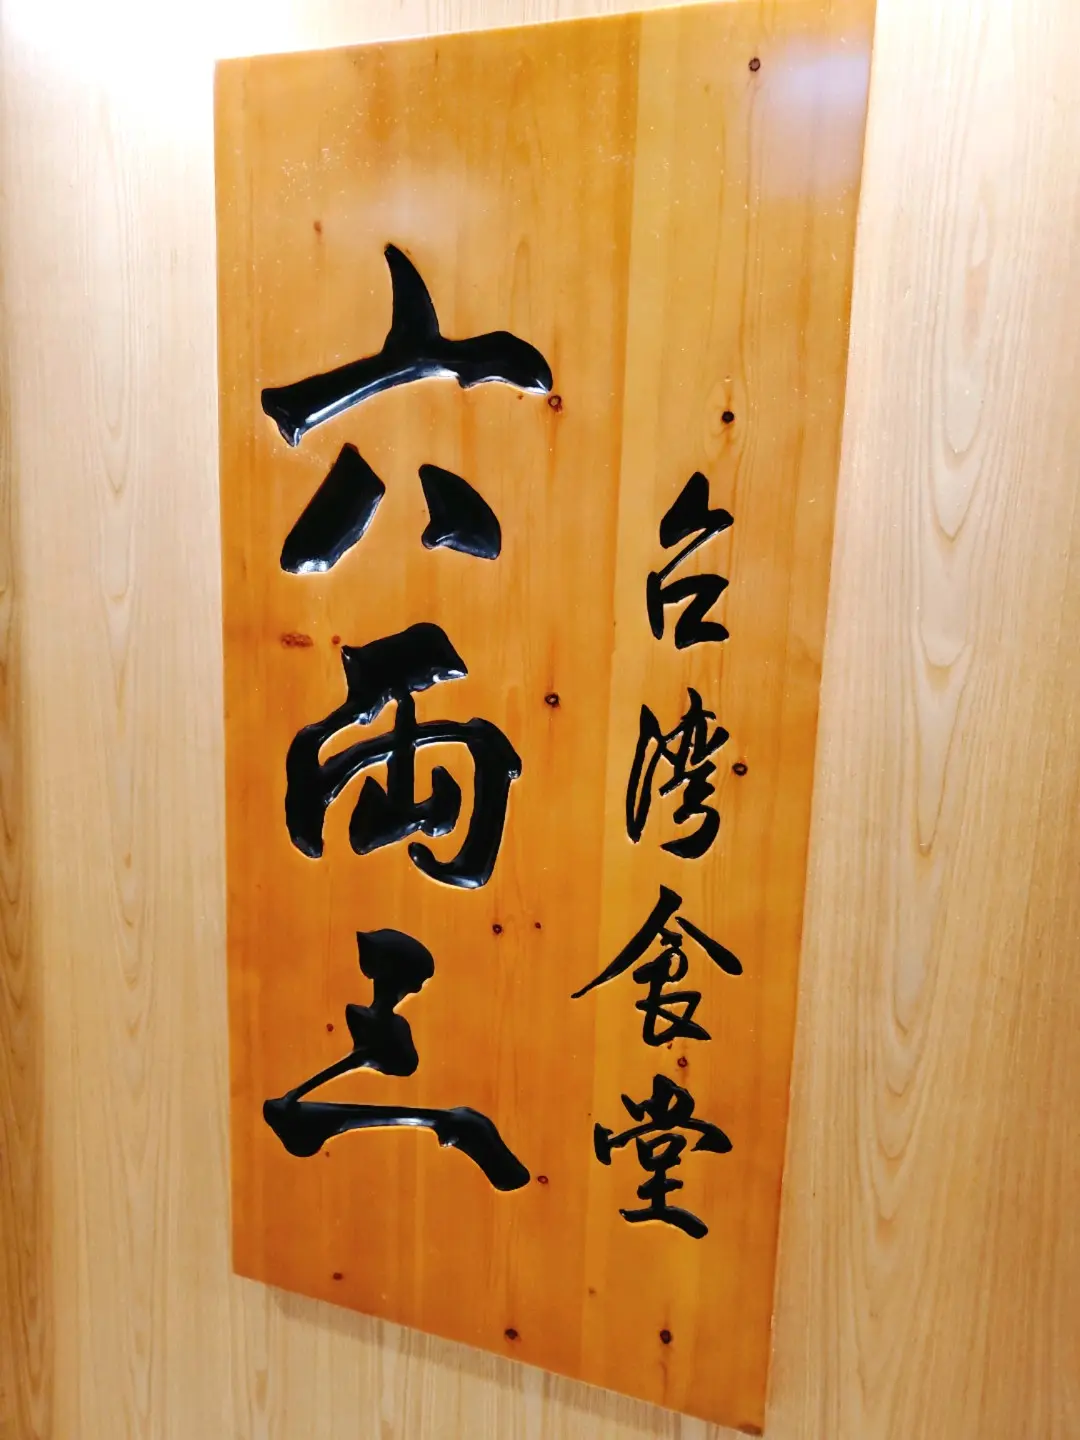 台湾食堂
六两三